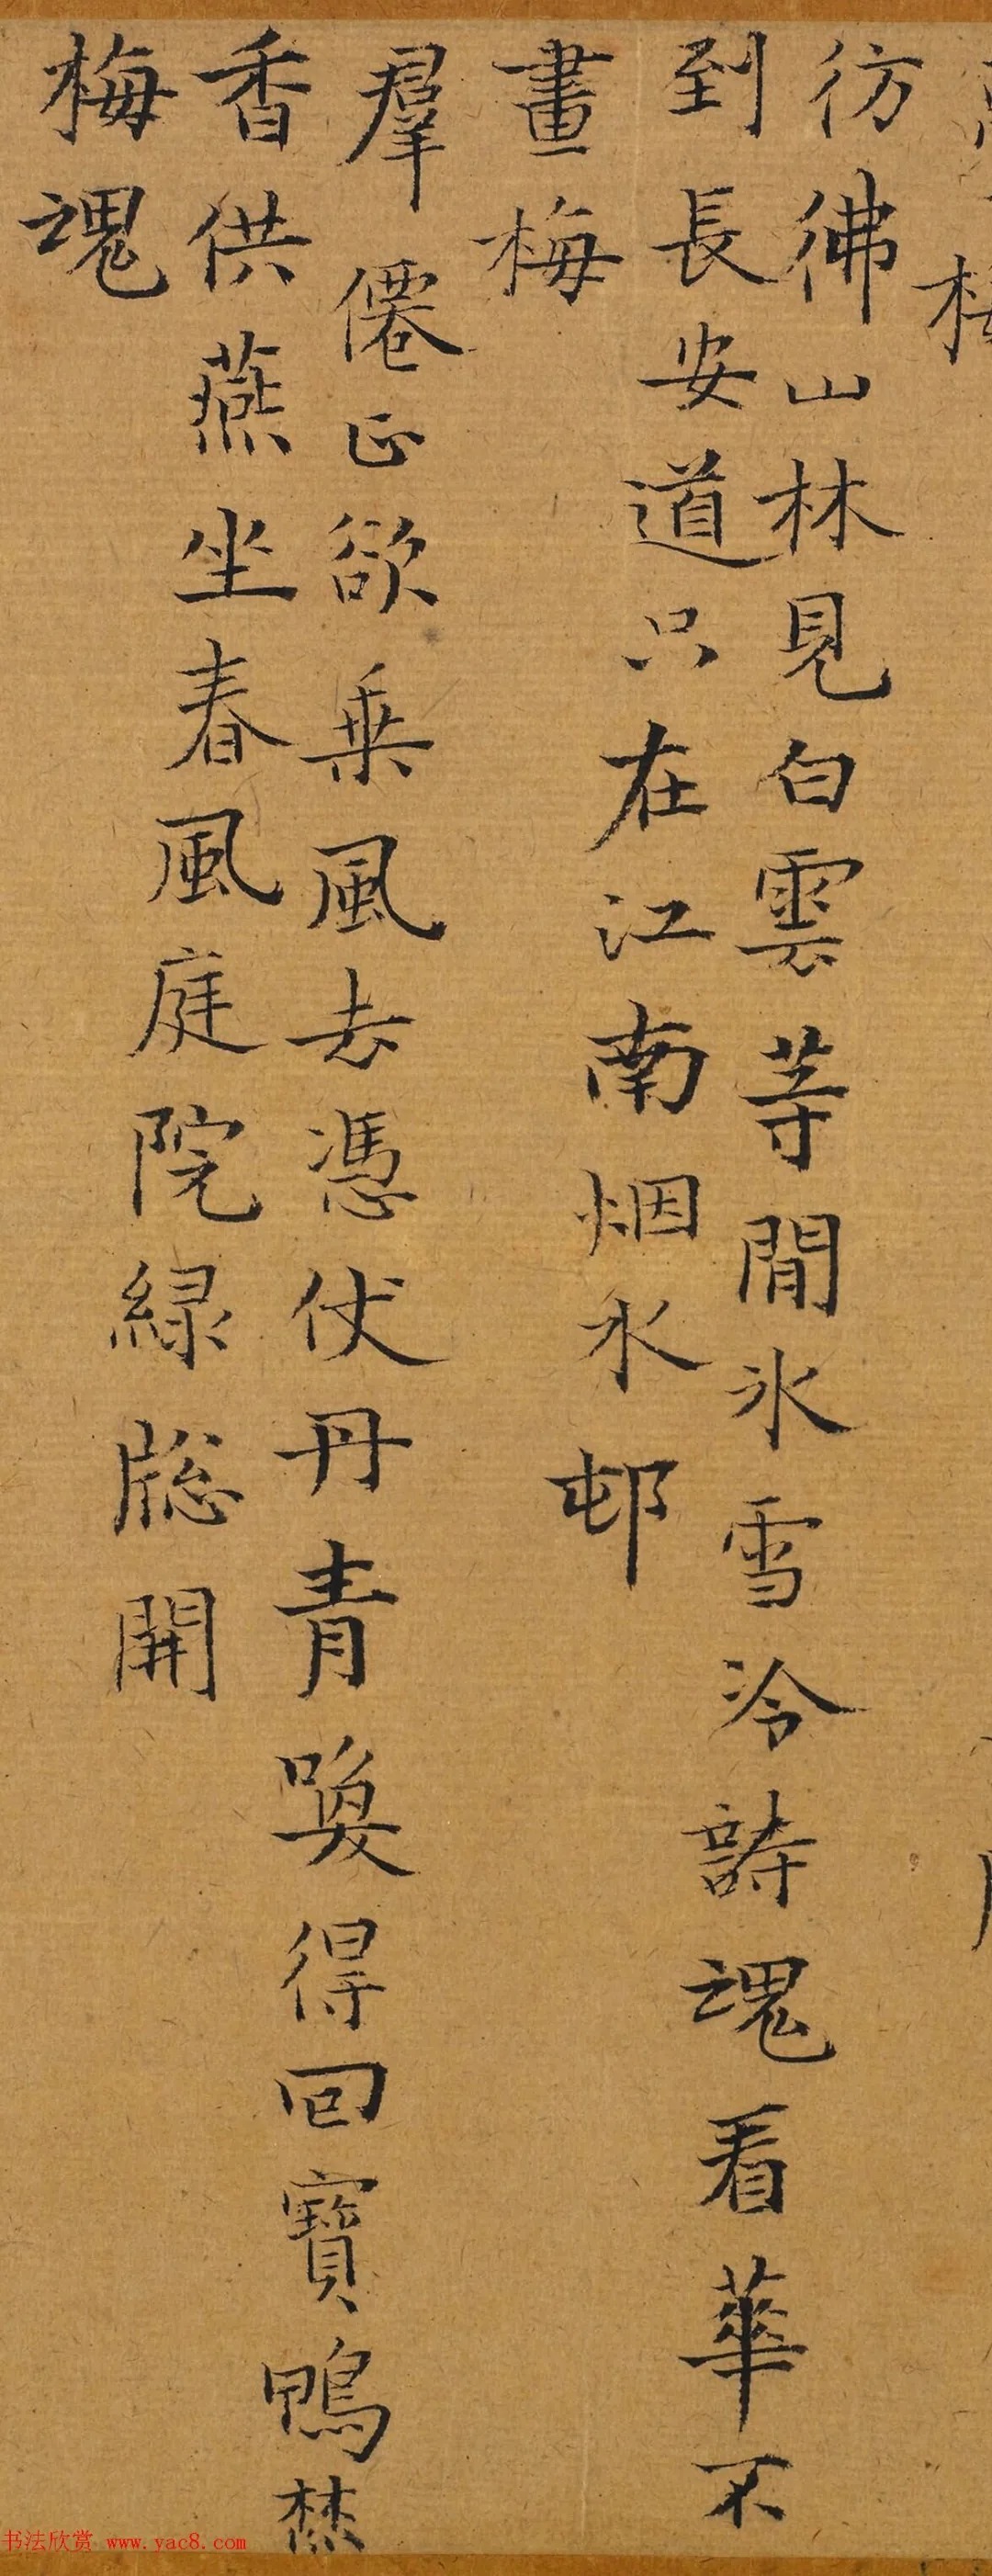 梅
彷彿山林見白雲等閒冰雪冷詩魂看華不
到長安道只在江南烟水邨
畫梅
羣僊正欲乗風去憑仗丹青喚得回寶鴨焚
香供燕坐春風庭院緑牕開
梅魂
书法欣赏 www.yac8.com